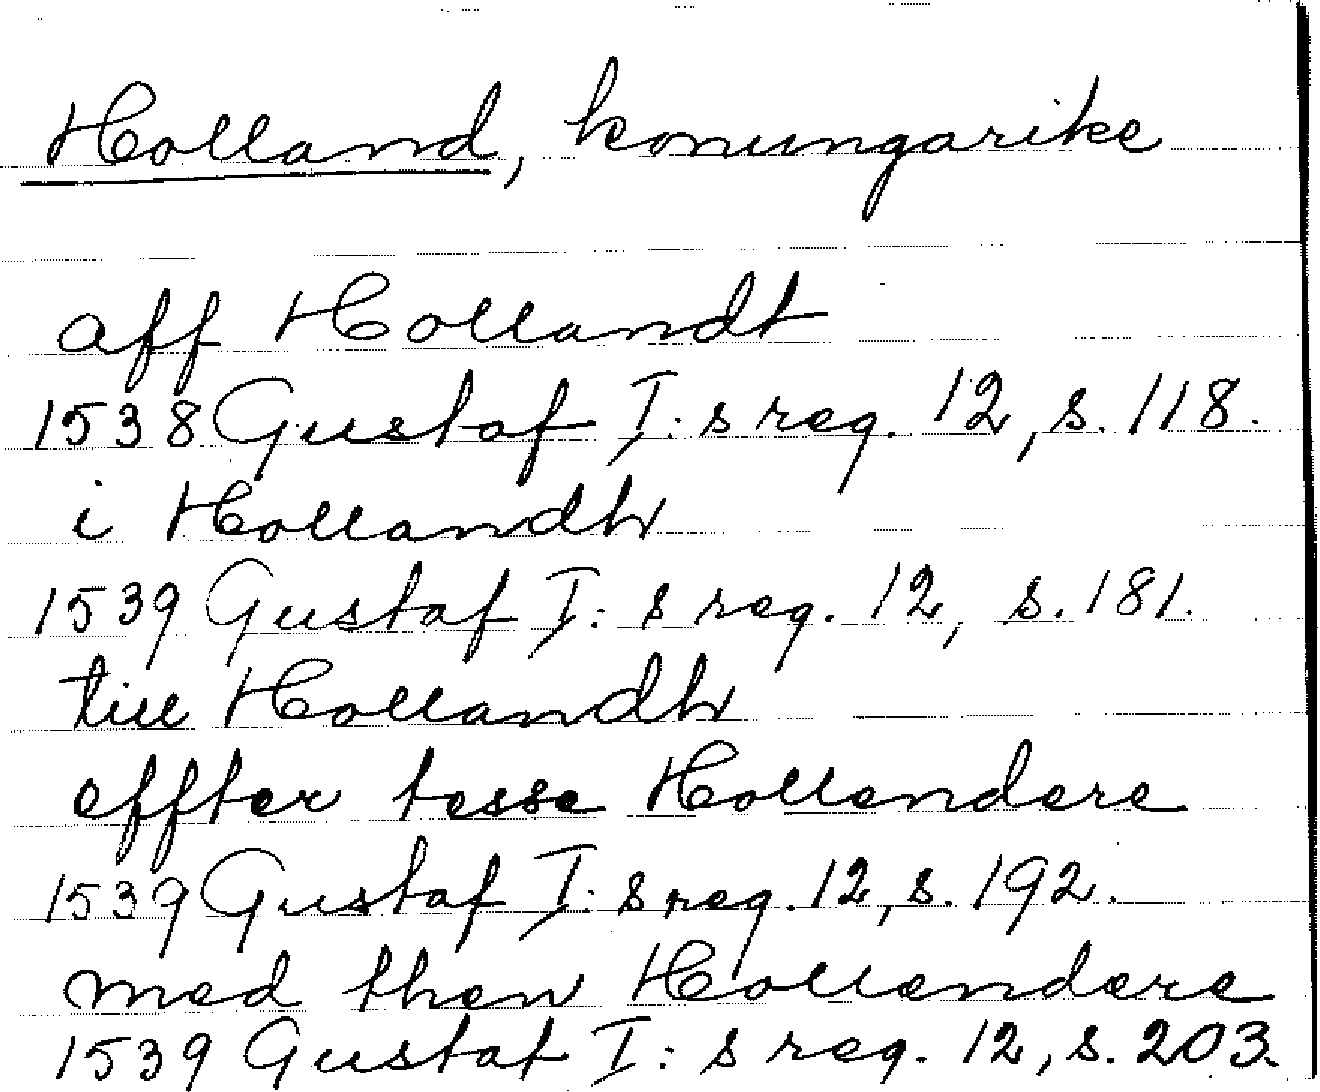 Holland, konungarike
aff Hollandt
1538 Gustaf I:s reg. 12, s. 118.
i Hollandh
1539 Gustaf I:s reg. 12, s. 181.
till Hollandh
effter tesse Hollendere
1539 Gustaf I:s reg. 12, s. 192.
med then Hollendere
1539 Gustaf I:s reg. 12, s. 203.